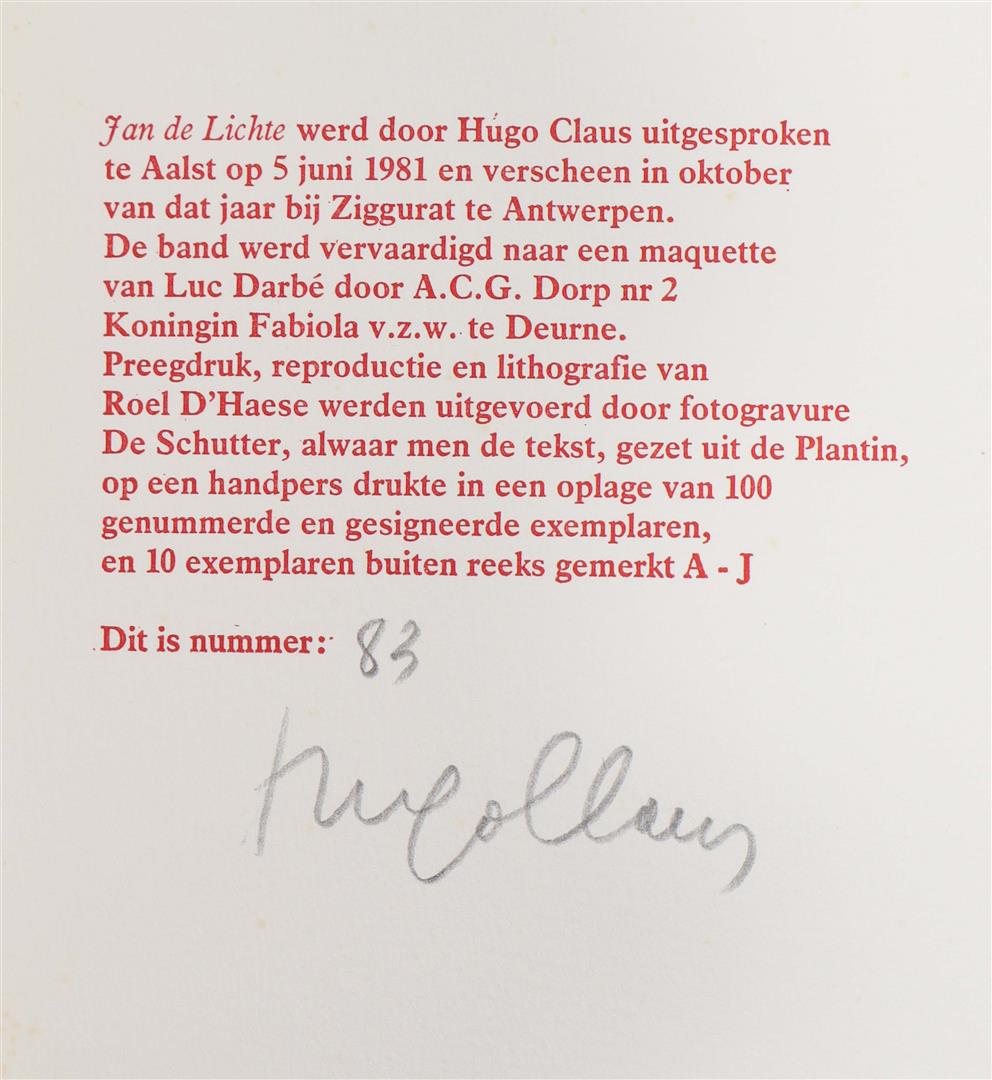 Jan de Lichte werd door Hugo Claus uitgesproken
te Aalst op 5 juni 1981 en verscheen in oktober
van dat jaar bij Ziggurat te Antwerpen.
De band werd vervaardigd naar een maquette
van Luc Darbé door A.C.G. Dorp nr 2
Koningin Fabiola v.z.w. te Deurne.
Preegdruk, reproductie en lithografie van
Roel D'Haese werden uitgevoerd door fotogravure
De Schutter, alwaar men de tekst, gezet uit de Plantin,
op een handpers drukte in een oplage van 100
genummerde en gesigneerde exemplaren,
en 10 exemplaren buiten reeks gemerkt A - J
Dit is nummer: 83
Hugo Claus